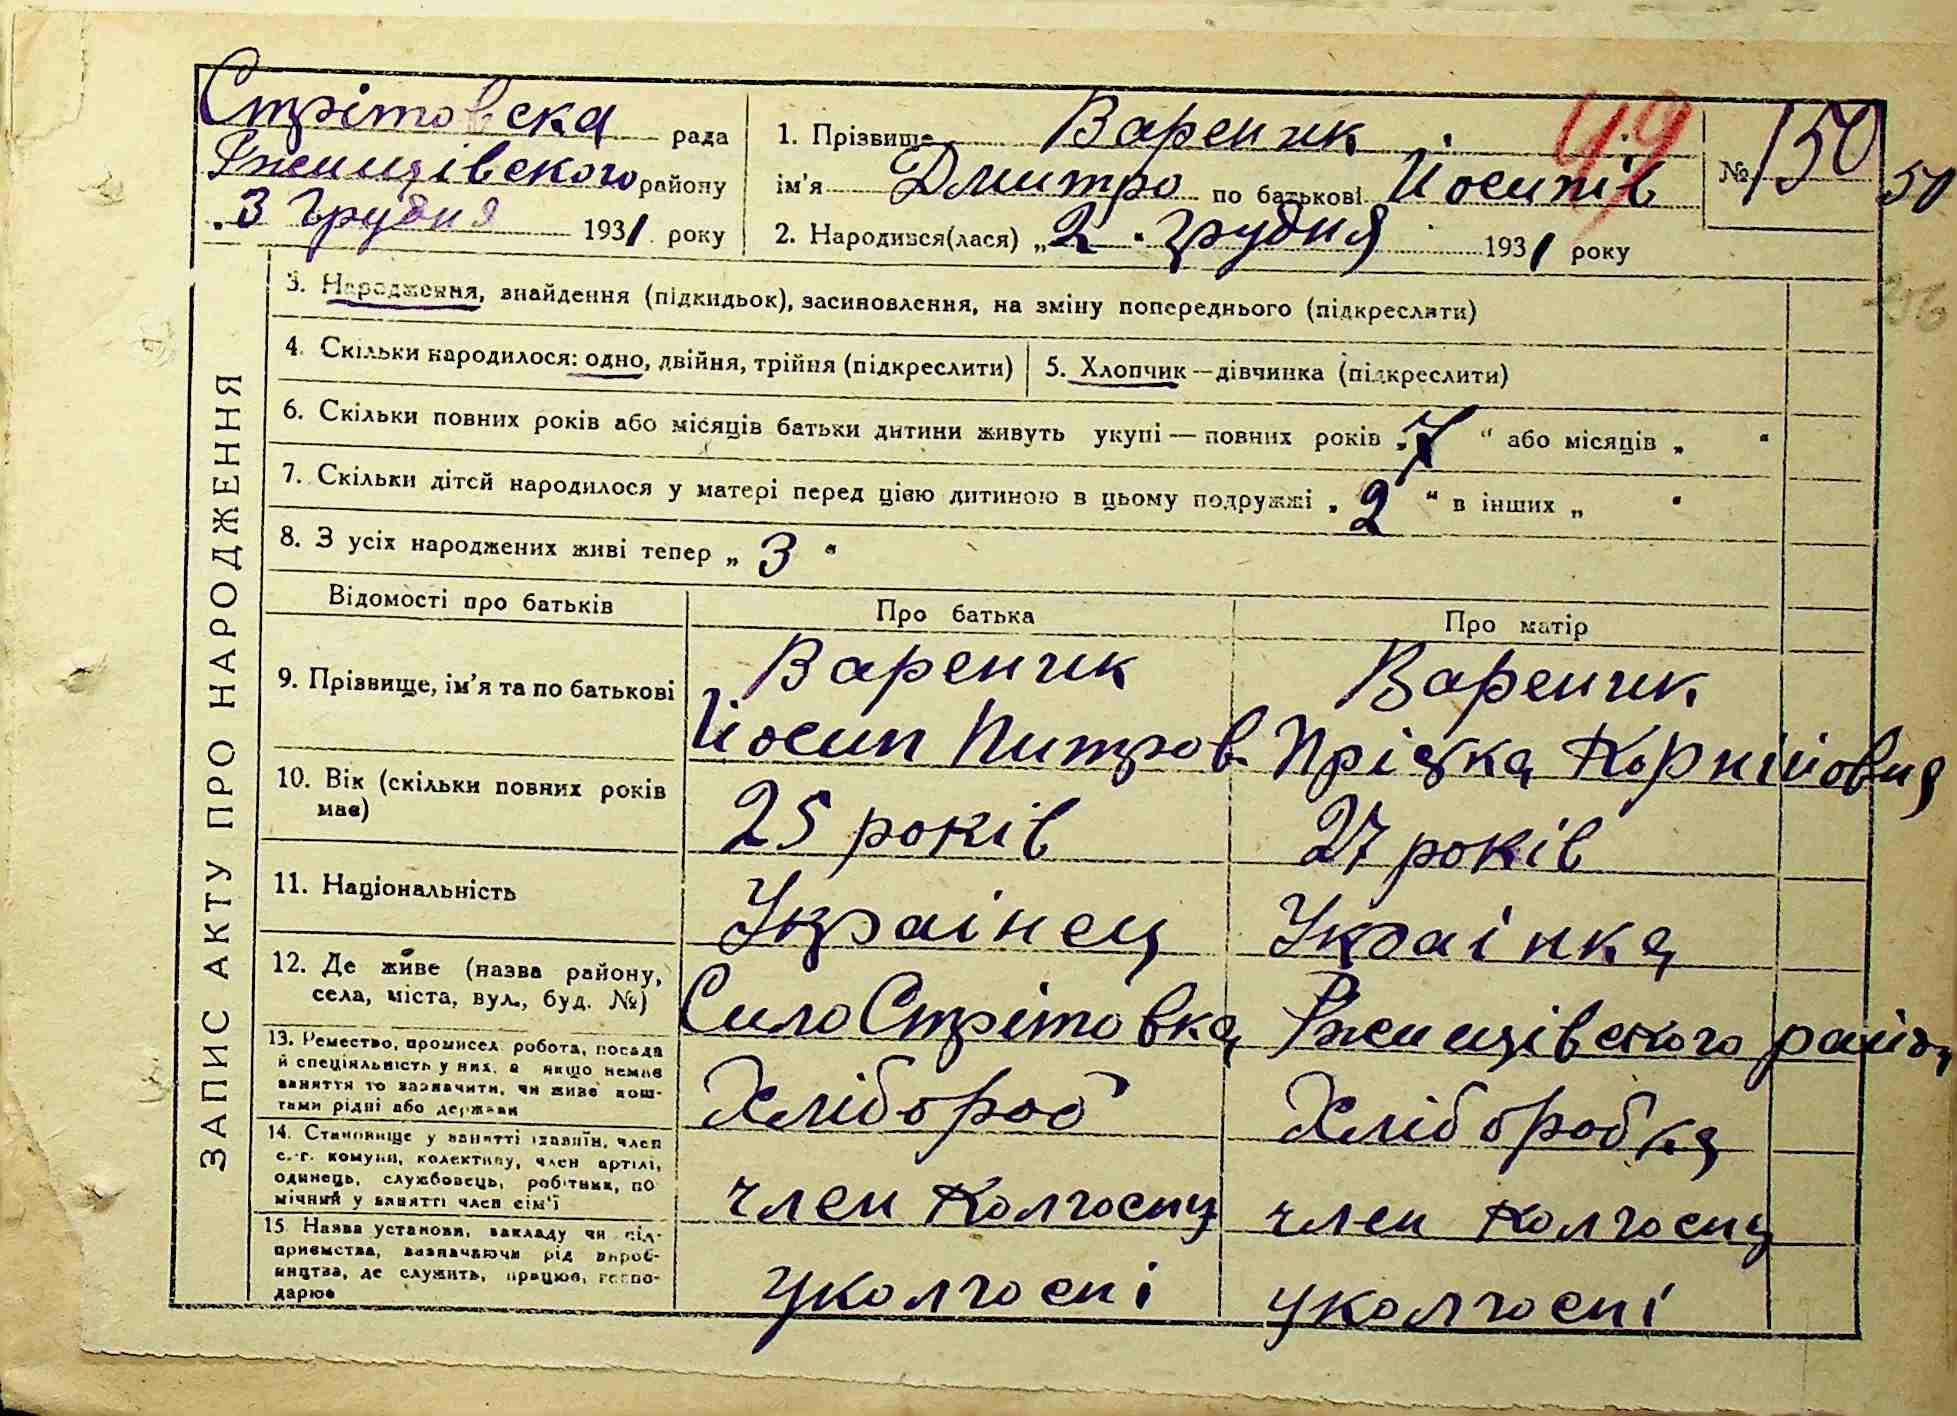 Стрітовска рада
Ржищівского району
„3 Грудня 1931 року
1. Прізвище Вареник
ім'я Дмитро по батькові Йосипів
2. Народився(лася) „2" грудня 1931 року
49
№ 150
50
ЗАПИС АКТУ ПРО НАРОДЖЕННЯ
3. Народження, знайдення (підкидьок), засиновлення, на зміну попереднього (підкреслити)
4. Скільки народилося: одно, двійня, трійня (підкреслити)
5. Хлопчик—дівчинка (підкреслити)
6. Скільки повних років або місяців батьки дитини живуть укупі — повних років „7" або місяців „ "
7. Скільки дітей народилося у матері перед цією дитиною в цьому подружжі „2" в інших „ "
8. З усіх народжених живі тепер „3"
Відомості про батьків
Про батька
Про матір
9. Прізвище, ім'я та по батькові
Вареник
Йосип Питров.
Вареник
Пріська Корнійовна
10. Вік (скільки повних років
має)
25 років
27 років
11. Національність
Украінец
Украінка
12. Де живе (назва району,
села, міста, вул., буд. №)
Сило Стрітовка
Ржищівского району
13. Ремество, промисел робота, посада
й спеціяльність у них, а якщо немає
заняття то зазначити, чи живе кош-
тами рідні або держави
Хлібороб
Хліборобка
14. Становище у занятті хазяїн, член
с.-г. комуни, колективу, член артілі,
одинець, службовець, робітник, по
мічний у занятті член сім'ї
член колгоспу
член колгоспу
15 Назва установи, закладу чи під-
приємства, зазначаючи рід вироб-
ництва, де служить, працює, госпо-
дарює
уколгоспі
уколгоспі